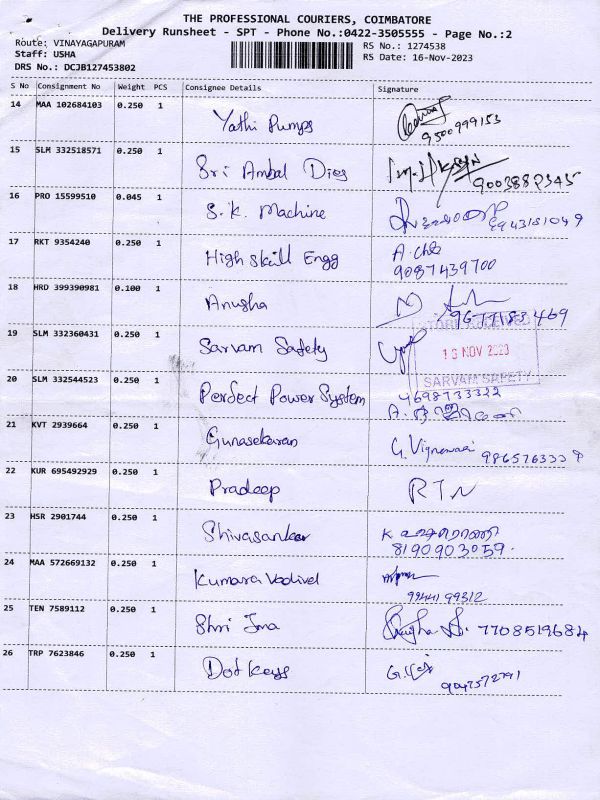 THE PROFESSIONAL COURIERS, COIMBATORE
Delivery Runsheet - SPT - Phone No.:0422-3505555 - Page No.:2
Route: VINAYAGAPURAM
RS No.: 1274538
Staff: USHA
RS Date: 16-Nov-2023
DRS No.: DCJB127453802
S No Consignment No Weight PCS Consignee Details Signature
14 MAA 102684103 0.250 1 Yathi Pumps
9500999153
15 SLM 332518571 0.250 1 Sri Ambal Dies
9003882345
16 PRO 15599510 0.045 1 S.K. Machine
9943151049
17 RKT 9354240 0.250 1 High skill Engg
9087439700
18 HRD 399390981 0.100 1 Anusha
9677183469
19 SLM 332360431 0.250 1 Sarvam Safety
STORE RECEIVED
16 NOV 2023
SARVAM SAFETY
20 SLM 332544523 0.250 1 Perfect Power System
9698733322
21 KVT 2939664 0.250 1 Gunasekaran
9865763339
22 KUR 695492929 0.250 1 Pradeep RTN
23 HSR 2901744 0.250 1 Shivasankar
8190903059.
24 MAA 572669132 0.250 1 Kumara Vadivel
9944199312
25 TEN 7589112 0.250 1 Shri Ima 7708519684
26 TRP 7623846 0.250 1 Dot Keys
9047572791